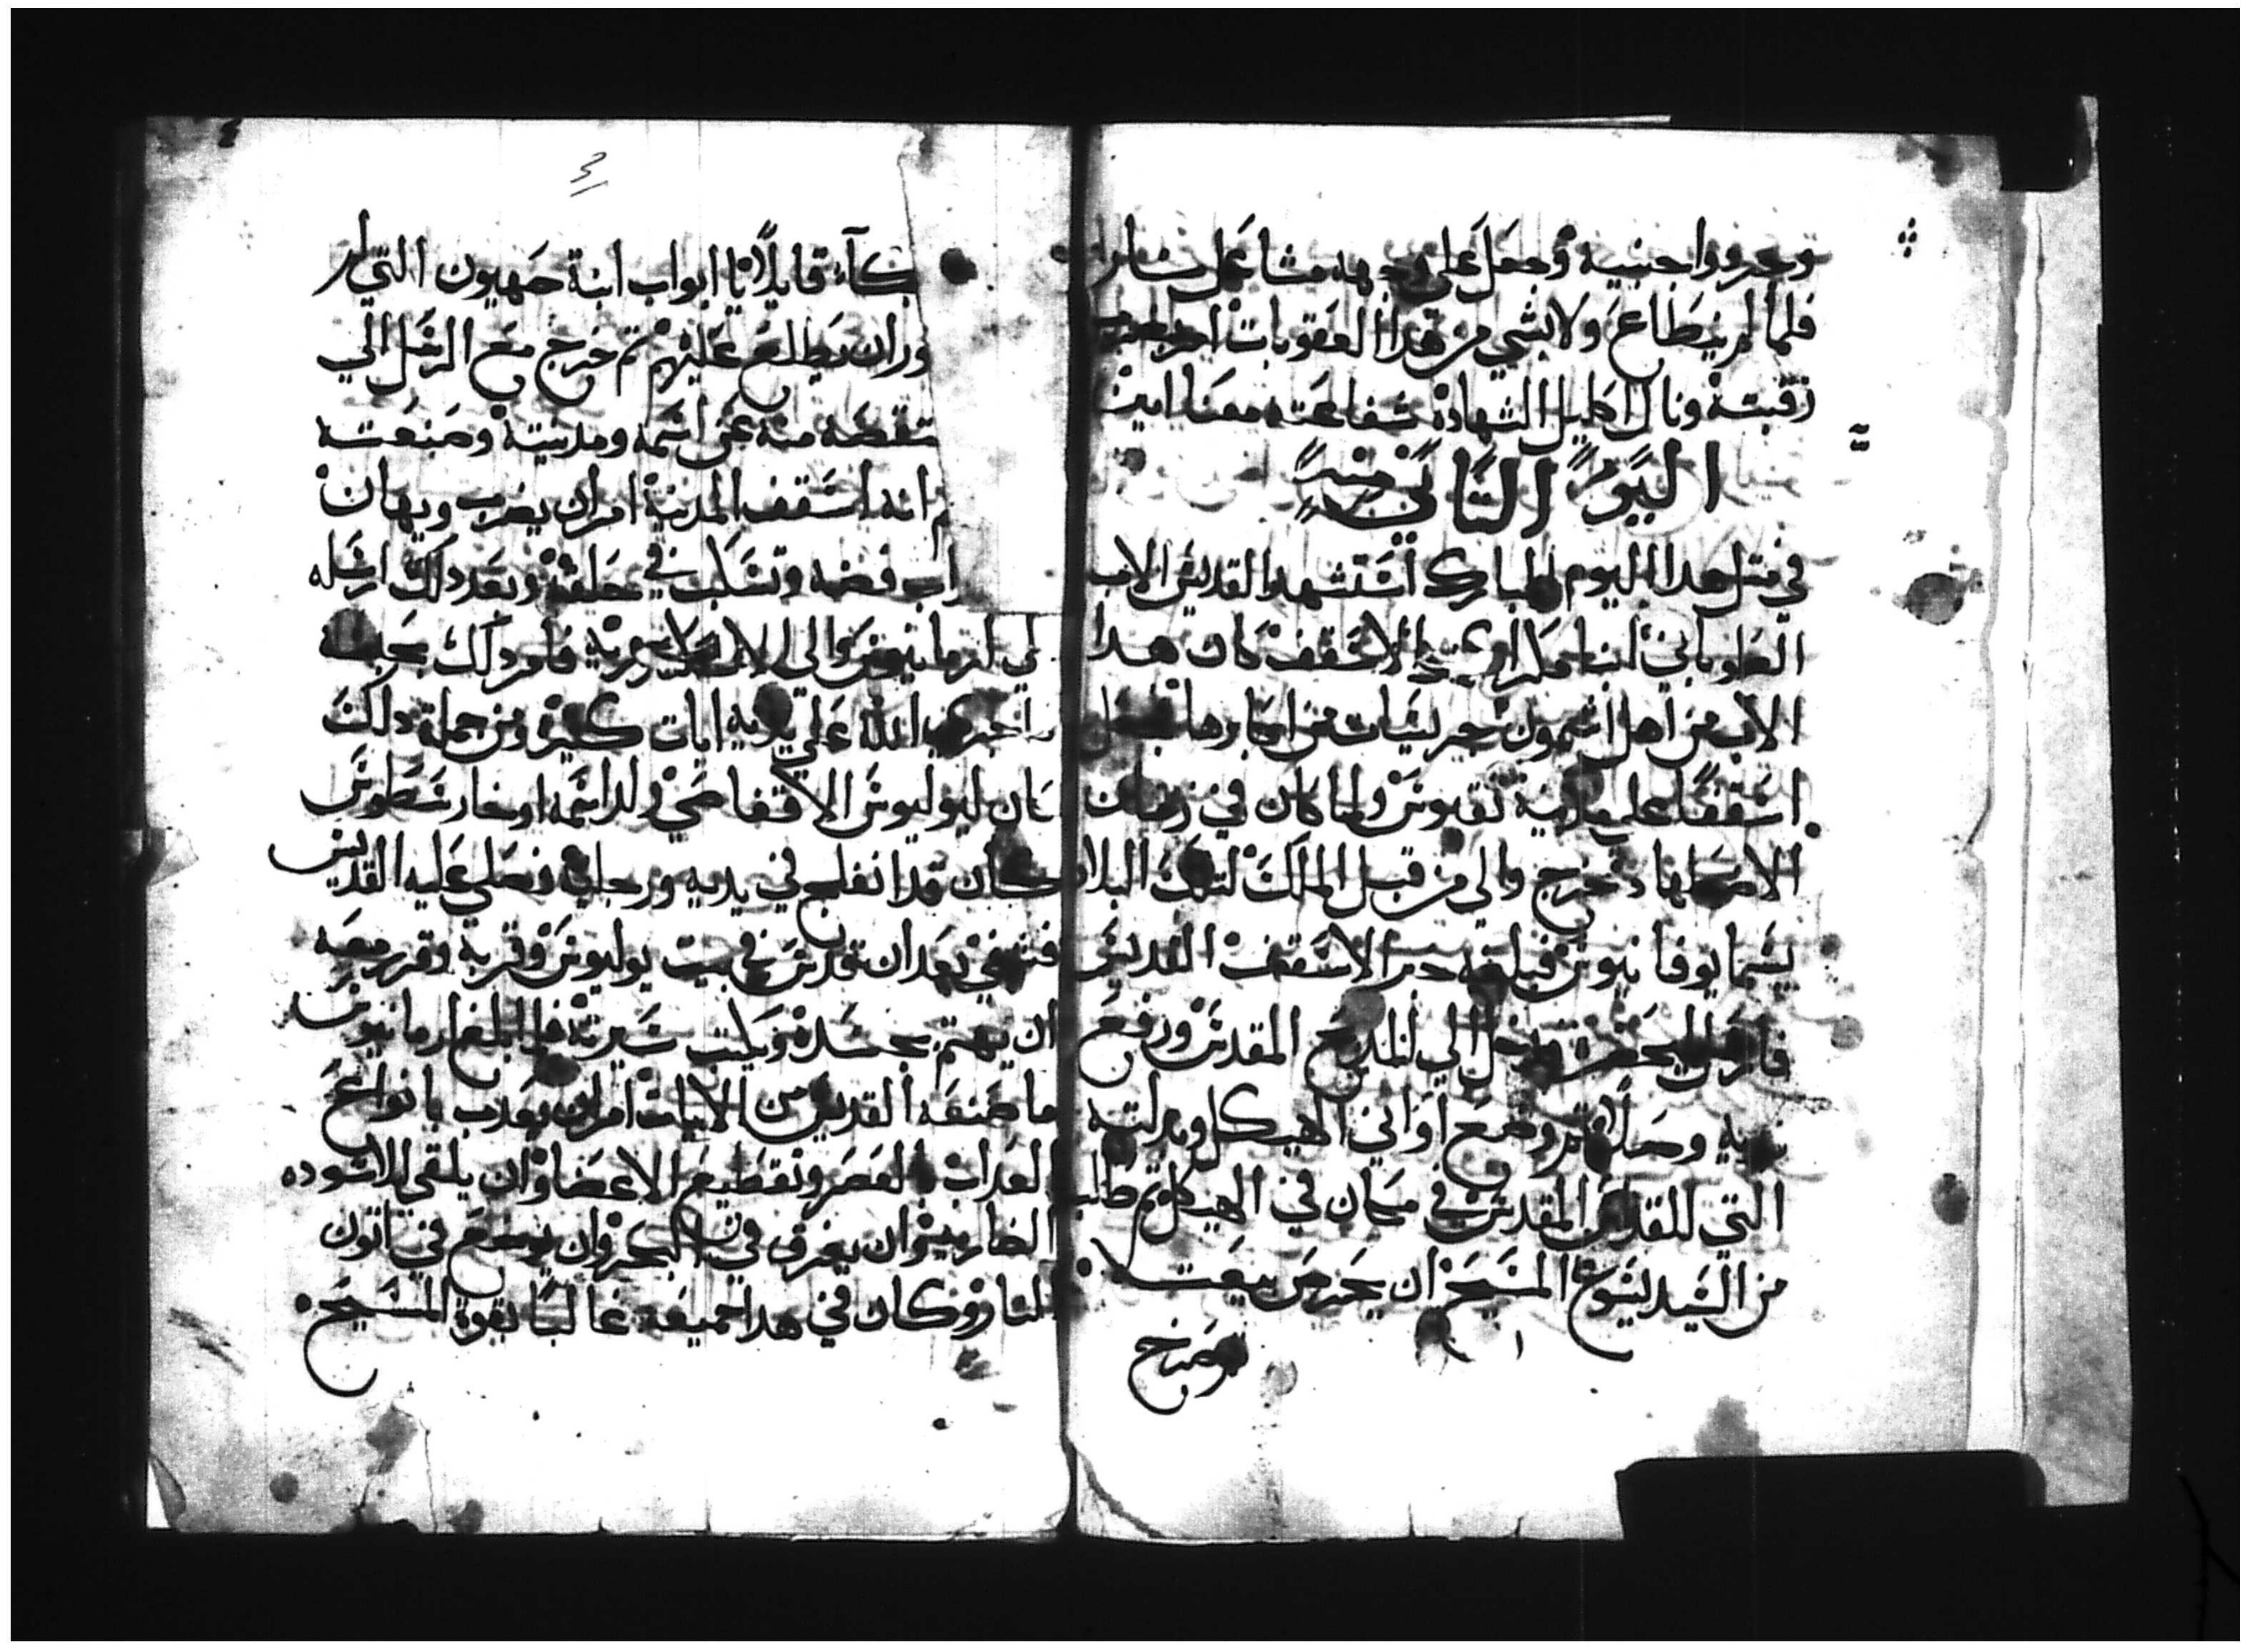 وجهه مشاعل نار
فلما لم يستطاع ولا بشي من هدا العقوبات
رقبته ونال اكليل الشهاده شفاعته معنا امين
اليوم التاني منه
في متل هدا اليوم المبارك استشهد القديس الاب
الطوباني انبا مكراوي الاسقف كان هدا
الاب من اهل اشمون جريسات من اكابرها
اسقفًا علي مدينة نقيوس ولما كان في زمان
الاضطهاد خرج والي من قبل الملك لتلك البلاد
يسما يوفانيوس فبلغه خبر الاسقف القديس
فارسل يحضره فدخل الي المدبح المقدس ورفع
يديه وصلا تم وضع اواني الهيكل وبدلته
التي للقداس المقدس في مكان في الهيكل تم طلب
من السيد يسوع المسيح ان يحرص بيعته
وصرخ
3
بكآء قايلًا يا ابواب ابنة صهيون التي
وران يطلع عليهم تم خرج مع الرسل الي
تقصه منه عن اسمه ومدينته وصنعته
انه اسقف المدينة امر ان يضرب ويهان
اب فضه وتسكب في حلقه وبعد دلك ارسله
لي ارمانيوس والي الاسكندريه فامر دلك بحبسه
اجري الله علي يديه ايات كتيرة ومن جملة دلك
كان ليوليوس الاقفاصي ولد اسمه اوخارسطوس
كان قد انفلج في يديه ورجليه فصلي عليه القديس
فشفي بعد ان قدس في بيت يوليوس وقربه وقرر معه
ان يهتم بجسده ويكتب سيرته فلما بلغ ارمانيوس
ما صنعه القديس من الايات امر ان يعدب بانواع
العداب بالعصر وتقطيع الاعضا وان يلقي للاسوده
الضاريه وان يغرق في البحر وان يوضع في اتون
النار وكان في هدا جميعه غالبًا بقوة المسيح